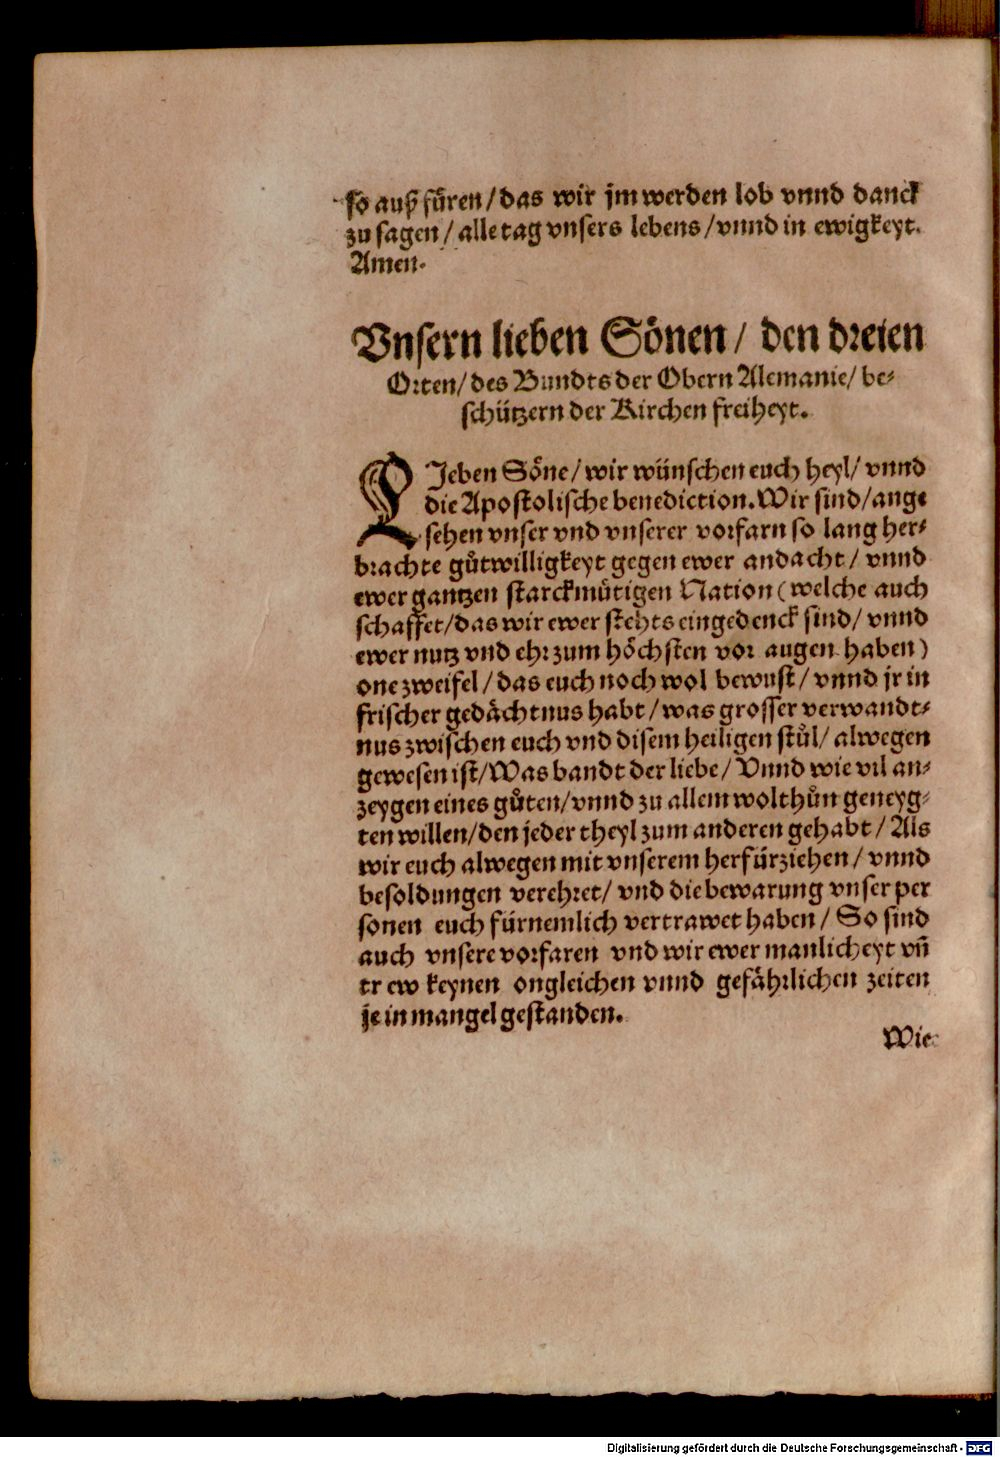 so auß fuͤren/das wir jm werden lob vnnd danck
zu sagen/alle tag vnsers lebens/vnnd in ewigkeyt.
Amen.
Vnsern lieben Soͤnen/ den dreien
Orten/des Bundts der Obern Alemanie/be-
schützern der Kirchen freiheyt.
LJeben Soͤne/wir wünschen euch heyl/vnnd
die Apostolische benediction. Wir sind/ange
sehen vnser vnd vnserer vorfarn so lang her-
brachte guͤtwilligkeyt gegen ewer andacht/vnnd
ewer gantzen starckmuͤtigen Nation (welche auch
schaffet/das wir ewer stehts eingedenck sind/vnnd
ewer nutz vnd ehr zum hoͤchsten vor augen haben)
one zweifel/das euch noch wol bewust/vnnd jr in
frischer gedaͤchtnus habt/was grosser verwandt-
nus zwischen euch vnd disem heiligen stuͤl/alwegen
gewesen ist/Was bandt der liebe/Vnnd wie vil an-
zeygen eines guͤten/vnnd zu allem wolthuͦn geneyg-
ten willen/den jeder theyl zum anderen gehabt/Als
wir euch alwegen mit vnserem herfürziehen/vnnd
besoldungen verehret/vnd die bewarung vnser per
sonen euch fürnemlich vertrawet haben/So sind
auch vnsere vorfaren vnd wir ewer manlicheyt vñ
trew keynen ongleichen vnnd gefaͤhrlichen zeiten
je in mangel gestanden.
Wie
Digitalisierung gefördert durch die Deutsche Forschungsgemeinschaft - DFG